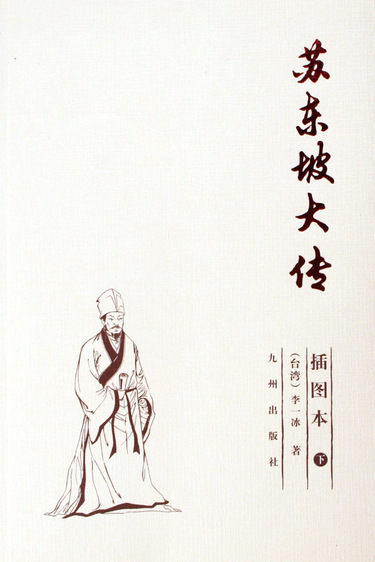 苏东坡大传
插图本 下
（台湾）李一冰 著
九州出版社